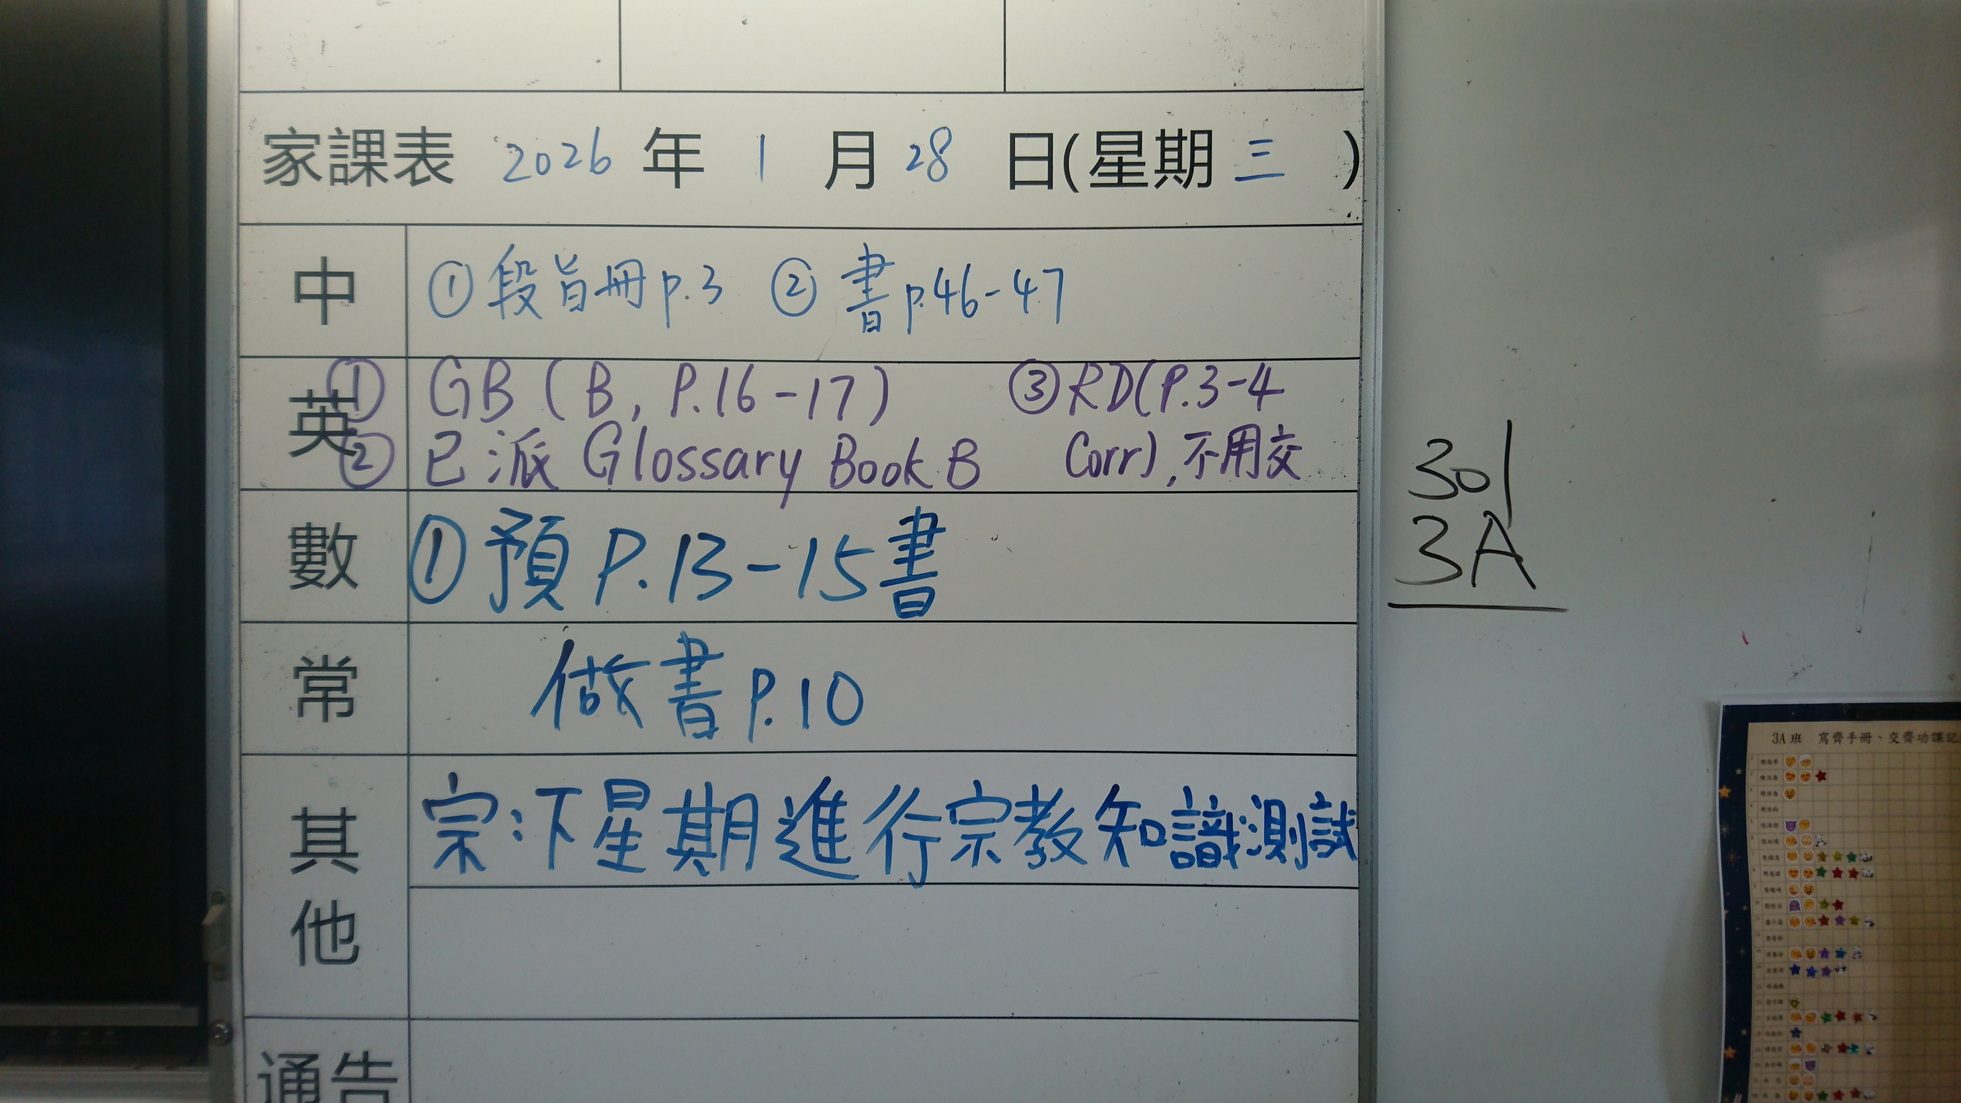 家課表 2026 年 1 月 28 日(星期 三 )
中 ① 段旨冊 p.3 ② 書 p.46-47
英 ① GB (B, P.16-17) ③ RD(P.3-4
② 已派 Glossary Book B Corr), 不用交
數 ① 預 P.13-15 書
常 做書 p.10
其他 宗:下星期進行宗教知識測試
通告
301
3A
3A班 寫齊手冊、交齊功課記